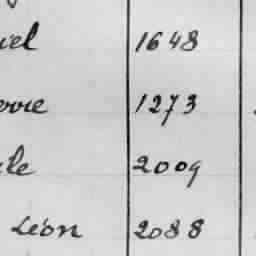 iel 1648
erre 1273
le 2009
Léon 2088